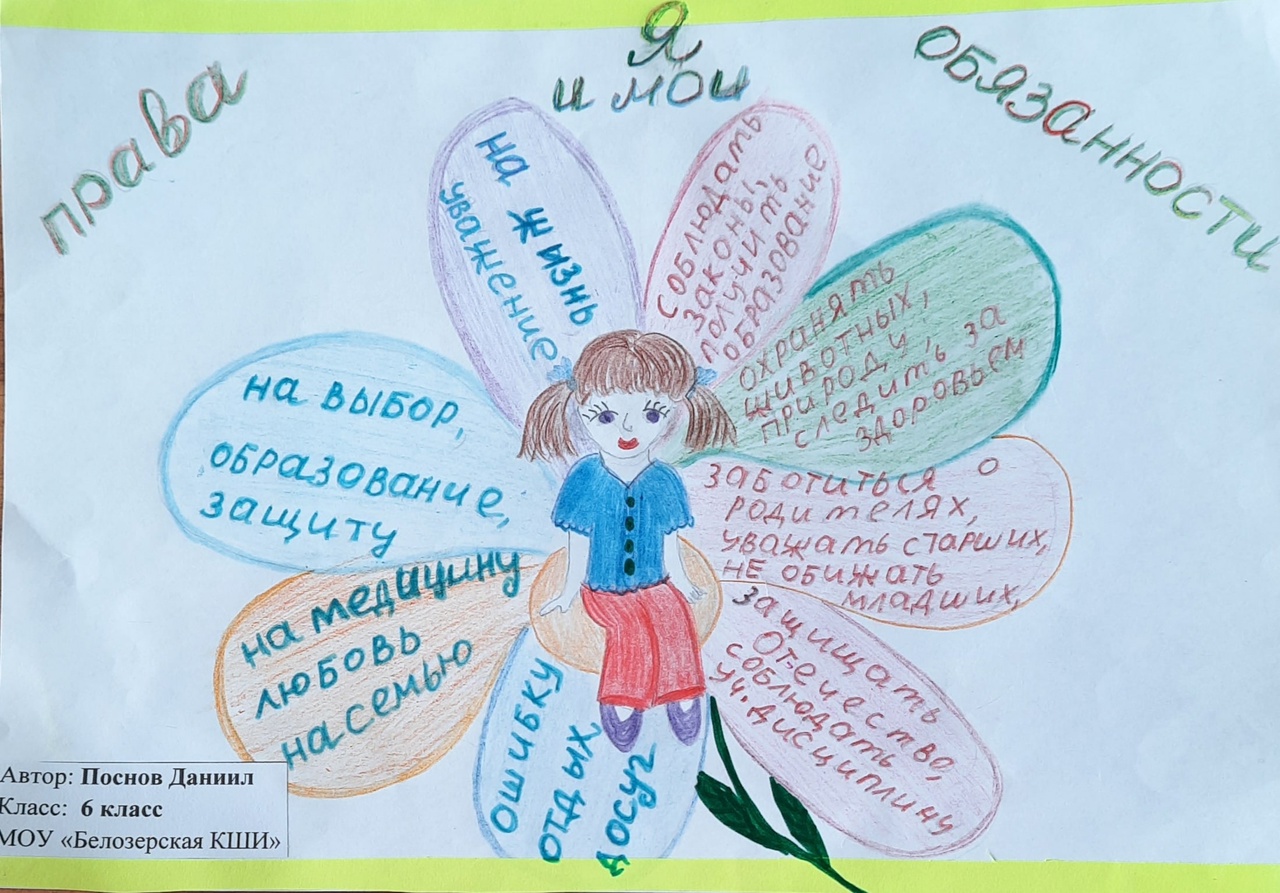 Я
и мои
права
обязанности
на жизнь
уважение
на выбор,
образование,
защиту
на медицину
любовь
на семью
ошибку
отдых
досуг
соблюдать
законы,
получить
образование
охранять
животных,
природу,
следить за
здоровьем
заботиться о
родителях,
уважать старших,
не обижать
младших,
защищать
Отечество,
соблюдать
уч. дисциплину
Автор: Поснов Даниил
Класс: 6 класс
МОУ «Белозерская КШИ»